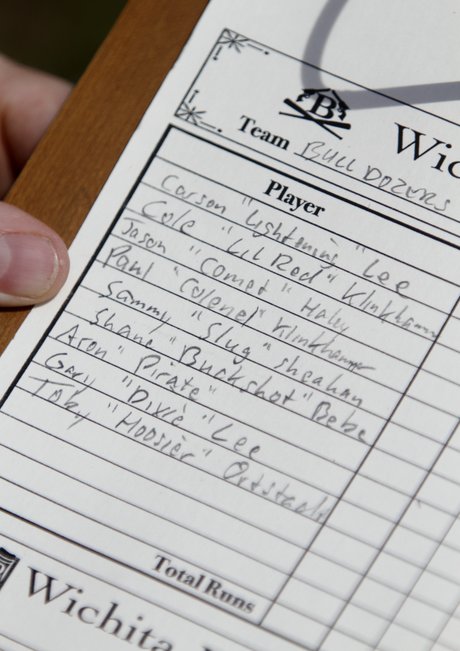 B
Team BULLDOZERS
Wic
Player
Carson "Lightning" Lee
Cole "Lil Red" Klinkhammer
Jason "Comet" Haley
Paul "Colonel" Klinkhammer
Sammy "Slug" Sheahan
Shane "Buckshot" Bebe
Aron "Pirate"
Gary "Dixie" Lee
Toby "Hoosier"
Total Runs
Wichita